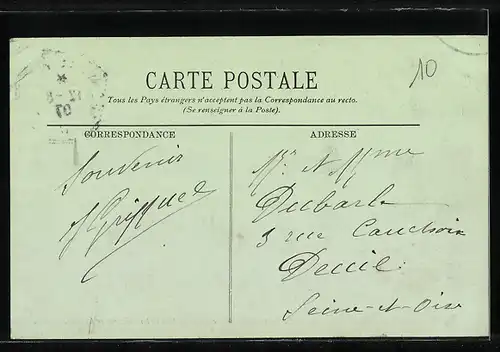 10
CARTE POSTALE
Tous les Pays étrangers n'acceptent pas la Correspondance au recto.
(Se renseigner à la Poste).
CORRESPONDANCE
ADRESSE
Souvenir
Mr et Mme
Dubarle
3 rue Cauchoix
Deuil
Seine-et-Oise